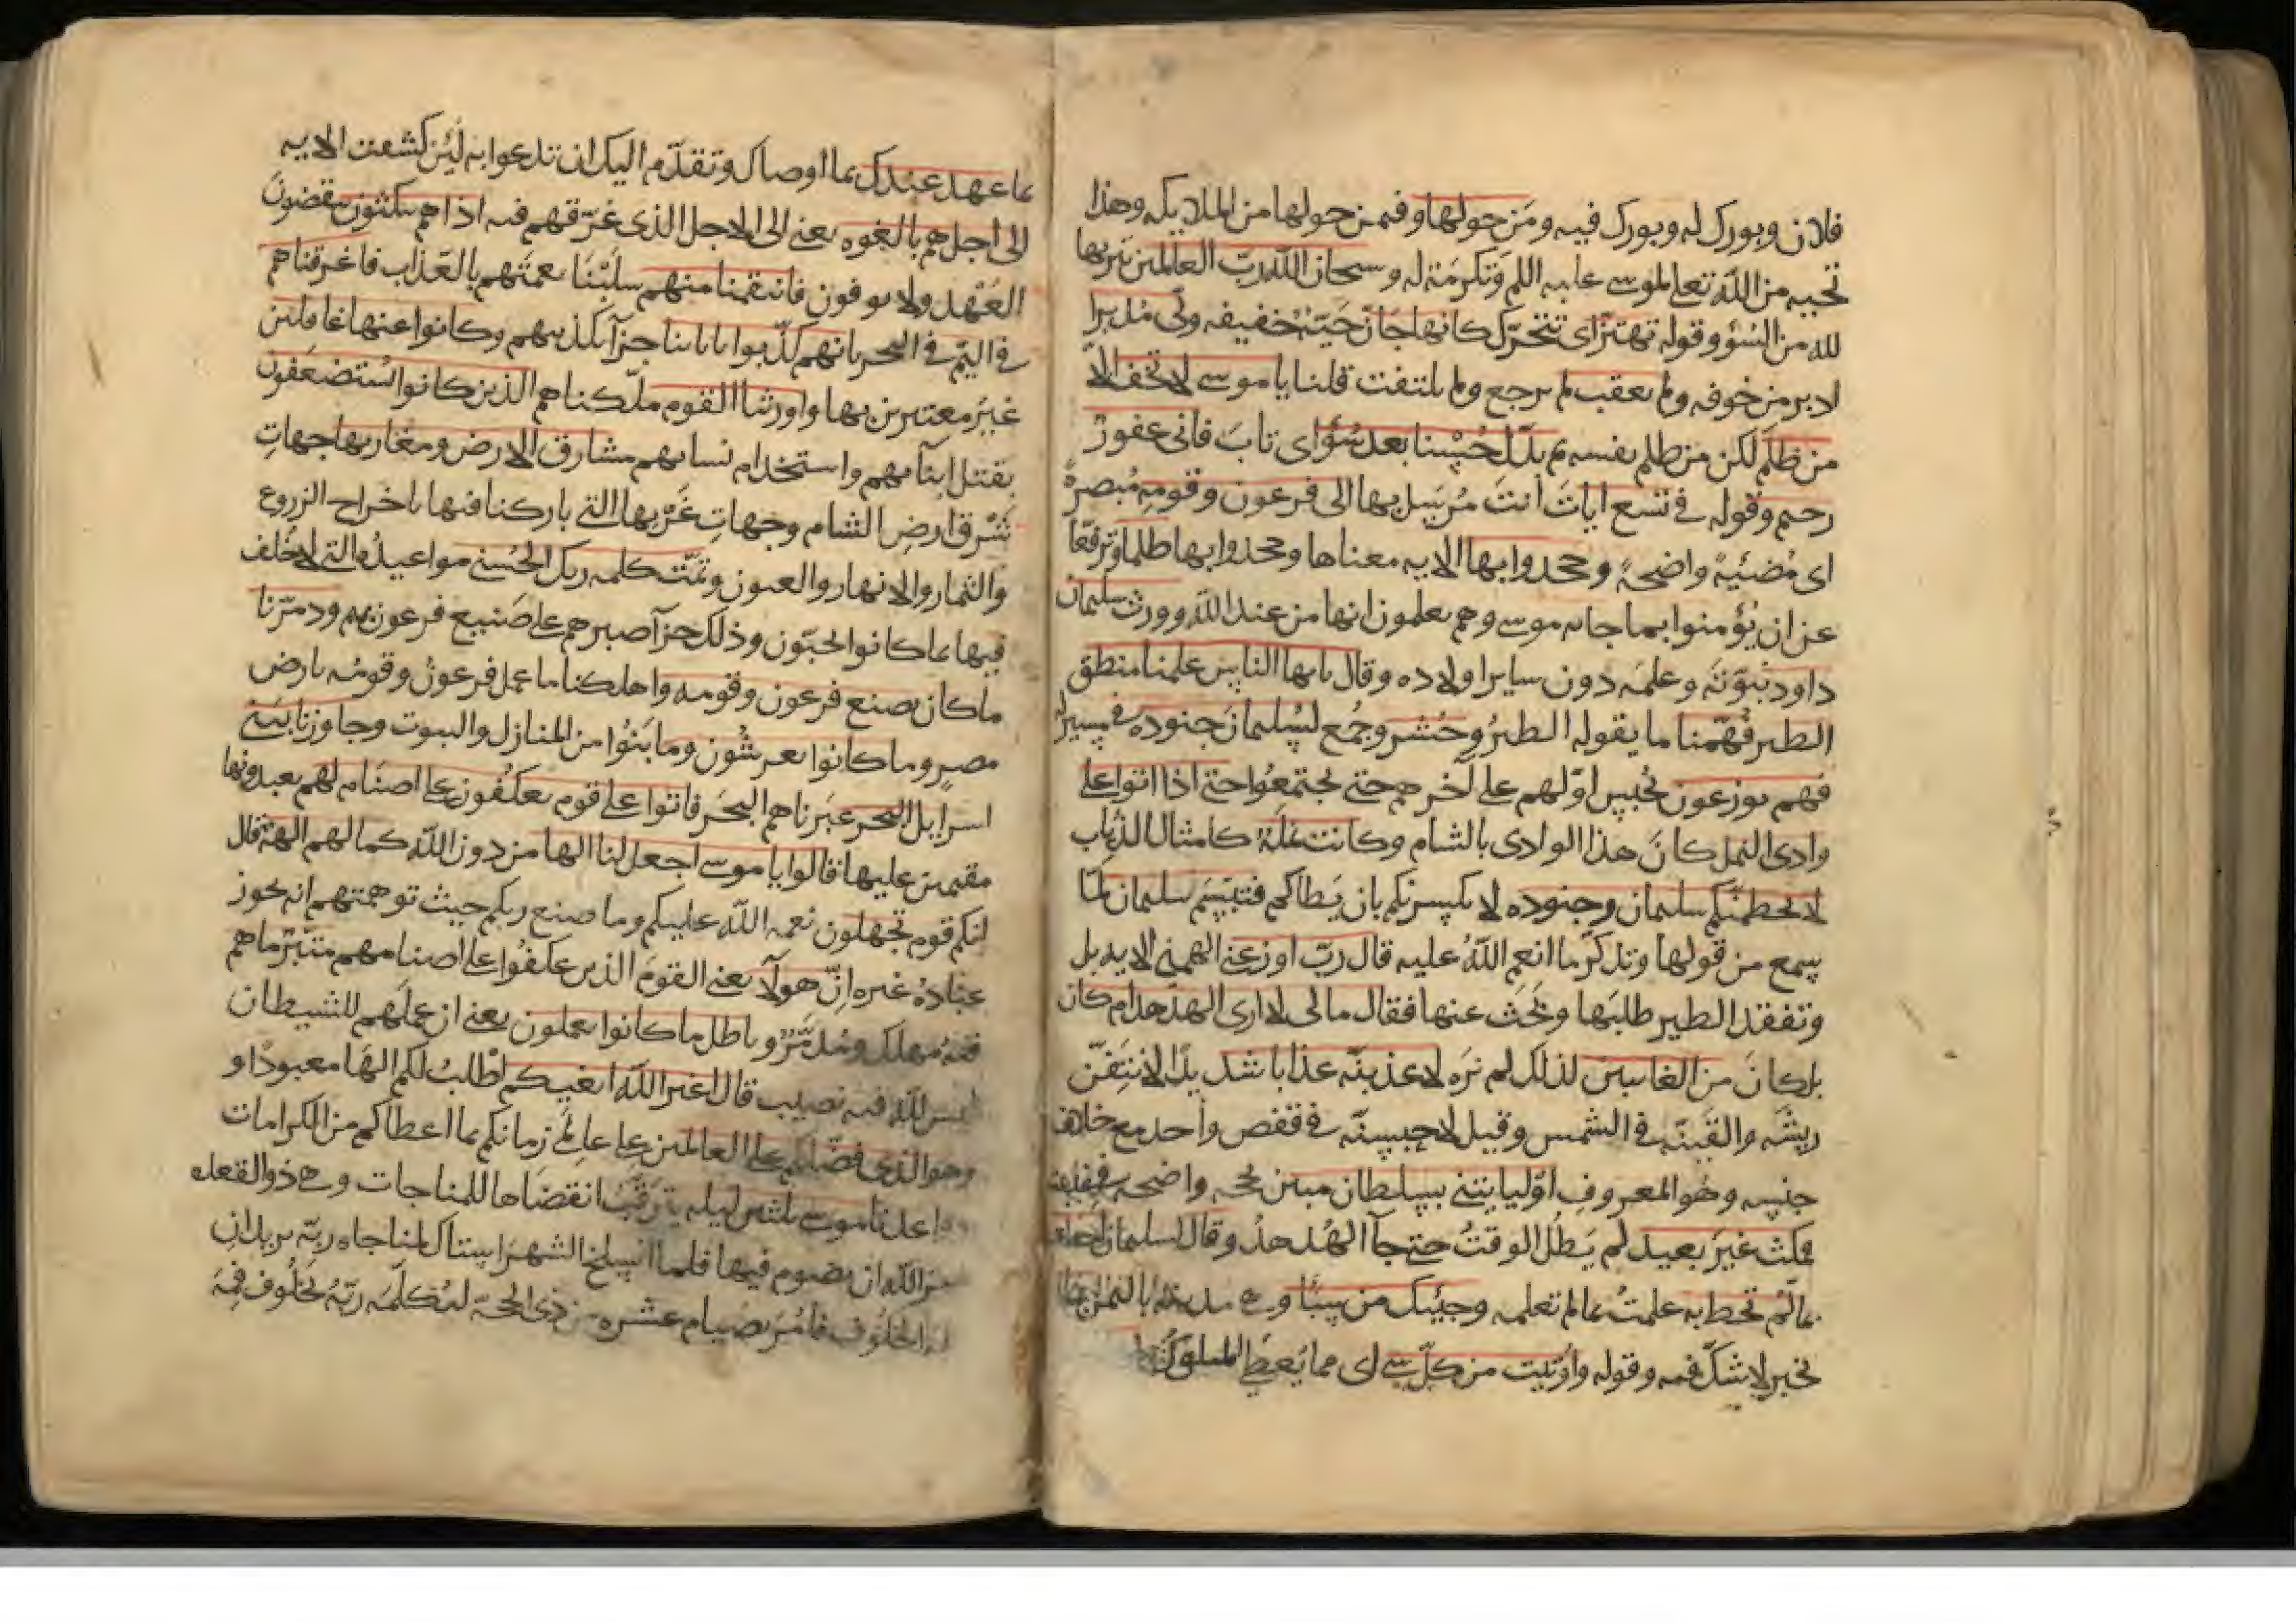 فلان وبورك له وبورك فيه ومن حولها وفيمن حولها من الملايكه وهذا
تحيه من الله تعالى لموسى عليه السلم وتكرمة له وسبحان الله رب العالمين تنزيها
لله من السوء وقوله تهتز اى تتحرك كانها جان حية خفيفه ولى مدبرا
ادبر من خوفه ولم يعقب لم يرجع ولم يلتفت قلنا يا موسى لا تخف الا
من ظلم لكن من ظلم نفسه ثم بدل حسنا بعد سوء اى تاب فانى غفور
رحيم وقوله فى تسع ايات انت مرسل بها الى فرعون وقومه مبصرة
اى مضيئة واضحة وجحدوا بها الايه معناها وجحدوا بها ظلما وترفعا
عن ان يؤمنوا بما جا به موسى وهم يعلمون انها من عند الله وورث سليمان
داود نبوته وعلمه دون ساير اولاده وقال يايها الناس علمنا منطق
الطير فهمنا ما يقوله الطير وحشر وجمع لسليمان جنوده فى مسير له
فهم يوزعون يحبس اولهم على آخرهم حتى يجتمعوا حتى اذا اتوا على
وادى النمل كان هذا الوادى بالشام وكانت نملة كامثال الذباب
لا يحطمنكم سليمان وجنوده لا يكسرنكم بان يطاكم فتبسم سليمان لما
سمع من قولها وتذكر ما انعم الله عليه قال رب اوزعنى الهمنى الايه
وتفقد الطير طلبها وبحث عنها فقال مالى لا ارى الهدهد ام كان
بل كان من الغايبين لذلك لم نره لاعذبنه عذابا شديدا لانتفن
ريشه والقينه فى الشمس وقيل لاحبسنه فى قفص واحد مع خلاف
جنسه وهو المعروف او ليايتنى بسلطان مبين بحجه واضحه فى غيبته
فمكث غير بعيد لم يطل الوقت حتى جآ الهدهد وقال لسليمان احطت
بما لم تحط به علمت بما لم تعلمه وجيتك من سبا وهى مدينة باليمن
بخبر لا شك فيه وقوله واوتيت من كل شى اى مما يعطى الملوك
بما عهد عندك بما اوصاك وتقدم اليك ان تدعوا به لئن كشفت الايه
الى اجل هم بالغوه يعنى الى الاجل الذى غرقهم فيه اذا هم ينكثون ينقضون
العهد ولا يوفون فانتقمنا منهم سلبنا نعمتهم بالعذاب فاغرقناهم
فى اليم فى البحر بانهم كذبوا باياتنا جزآ بكذبهم وكانوا عنها غافلين
غير معتبرين بها واورثنا القوم ملكناهم الذين كانوا يستضعفون
بقتل ابنآيهم واستخدام نسايهم مشارق الارض ومغاربها جهات
شرق ارض الشام وجهات غربها التى باركنا فيها باخراج الزروع
والثمار والانهار والعيون وتمت كلمه ربك الحسنى مواعيده التى لا خلف
فيها بما كانوا يحبون وذلك جزآ صبرهم على صنيع فرعون بهم ودمرنا
ما كان يصنع فرعون وقومه واهلكنا ما عمل فرعون وقومه بارض
مصر وما كانوا يعرشون وما بنوا من المنازل والبيوت وجاوزنا ببنى
اسرايل البحر عبرناهم البحر فاتوا على قوم يعكفون على اصنام لهم يعبدونها
مقيمين عليها قالوا يا موسى اجعل لنا الها من دون الله كما لهم الهة قال
انكم قوم تجهلون نعمه الله عليكم وما صنع ربكم حيث توهمتهم انه يجوز
عبادة غيره ان هولآ يعنى القوم الذين عكفوا على اصنامهم متبر ما هم
فيه مهلك ومدمر وباطل ما كانوا يعملون يعنى ان عملهم للشيطان
ليس لله فيه نصيب قال اغير الله ابغيكم اطلب لكم الها معبودا و
وهو الذى فضلكم على العالمين على عالمى زمانكم بما اعطاكم من الكرامات
وواعدنا موسى ثلثين ليله يترقب انقضاها للمناجات وهى ذو القعده
الله ان يصوم فيها فلما انسلخ الشهر استاك لمناجاه ربه يريد ان
الخلوف فامر بصيام عشره من ذى الحجة ليكلمه ربه بخلوف فمه